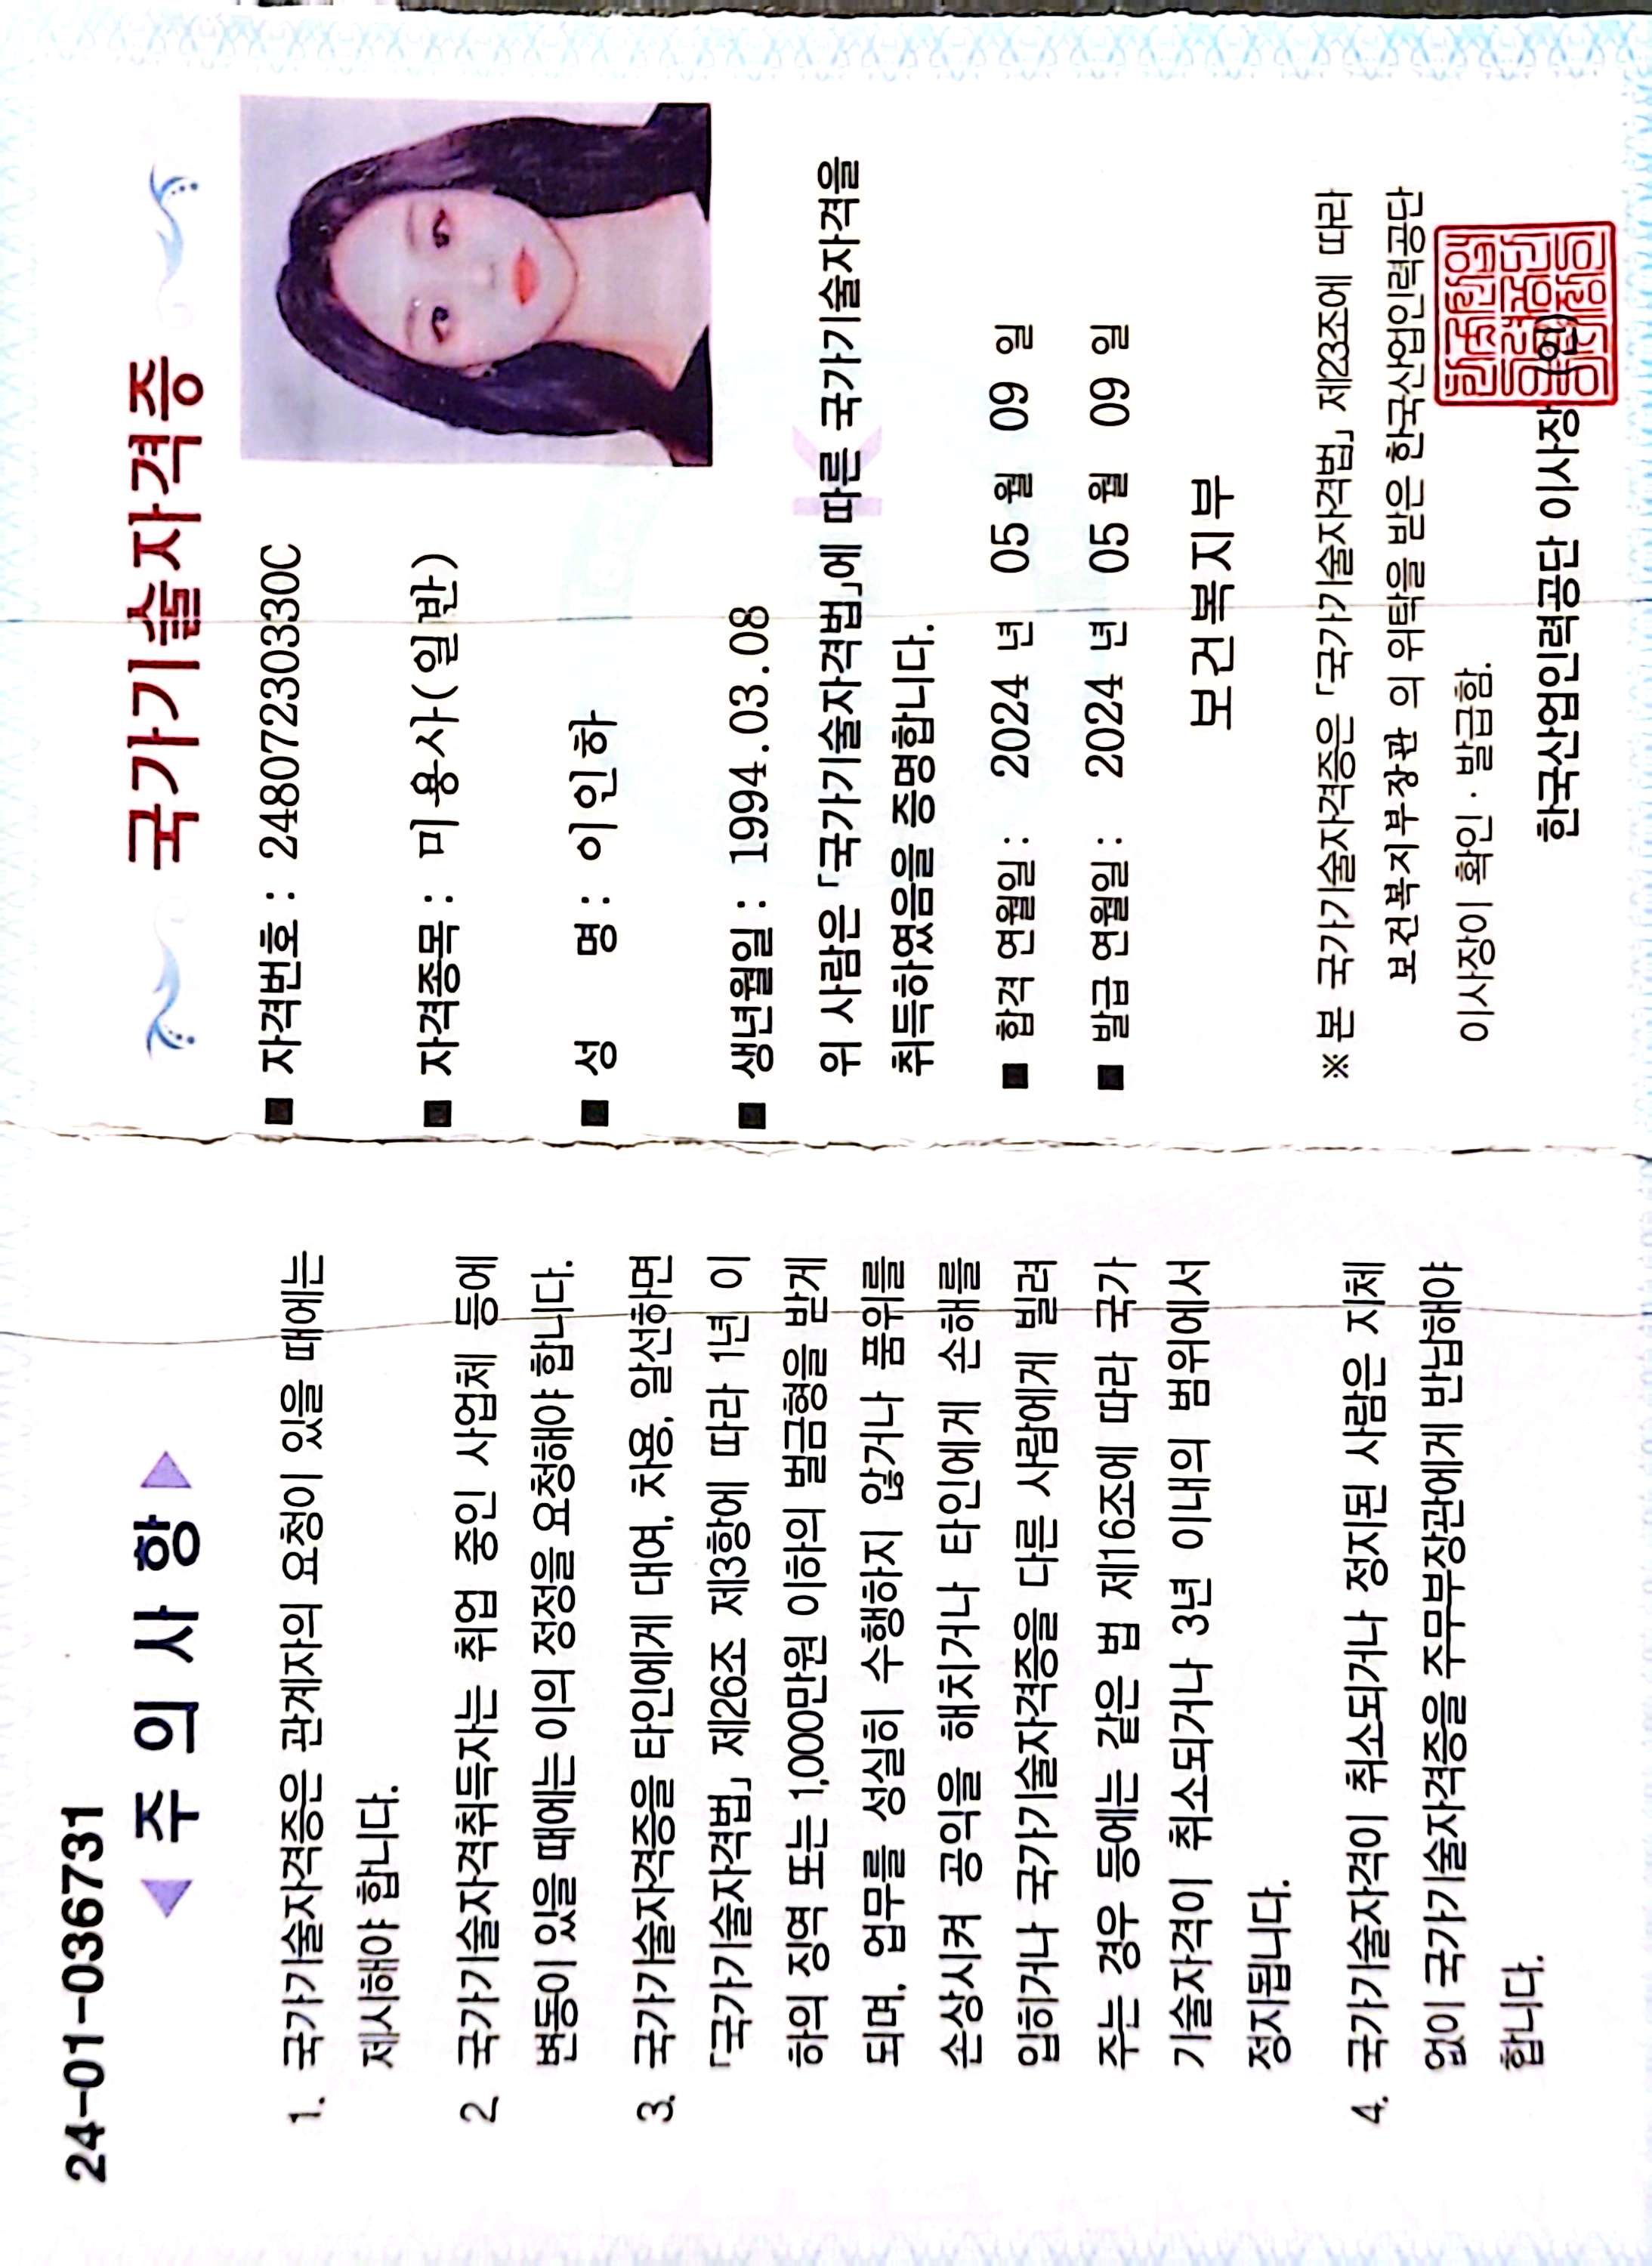 24-01-036731
주 의 사 항
1. 국가기술자격증은 관계자의 요청이 있을 때에는
제시해야 합니다.
2. 국가기술자격취득자는 취업 중인 사업체 등에
변동이 있을 때에는 이의 정정을 요청해야 합니다.
3. 국가기술자격증을 타인에게 대여, 차용, 알선하면
「국가기술자격법」 제26조 제3항에 따라 1년 이
하의 징역 또는 1,000만원 이하의 벌금형을 받게
되며, 업무를 성실히 수행하지 않거나 품위를
손상시켜 공익을 해치거나 타인에게 손해를
입히거나 국가기술자격증을 다른 사람에게 빌려
주는 경우 등에는 같은 법 제16조에 따라 국가
기술자격이 취소되거나 3년 이내의 범위에서
정지됩니다.
4. 국가기술자격이 취소되거나 정지된 사람은 지체
없이 국가기술자격증을 주무부장관에게 반납해야
합니다.
국가기술자격증
■ 자격번호 : 24807230330C
■ 자격종목 : 미용사(일반)
■ 성 명 : 이인하
■ 생년월일 : 1994.03.08
위 사람은 「국가기술자격법」에 따른 국가기술자격을
취득하였음을 증명합니다.
■ 합격 연월일 : 2024 년 05 월 09 일
■ 발급 연월일 : 2024 년 05 월 09 일
보건복지부
※ 본 국가기술자격증은 「국가기술자격법」 제23조에 따라
보건복지부장관 의 위탁을 받은 한국산업인력공단
이사장이 확인 · 발급함.
한국산업인력공단 이사장 (인)